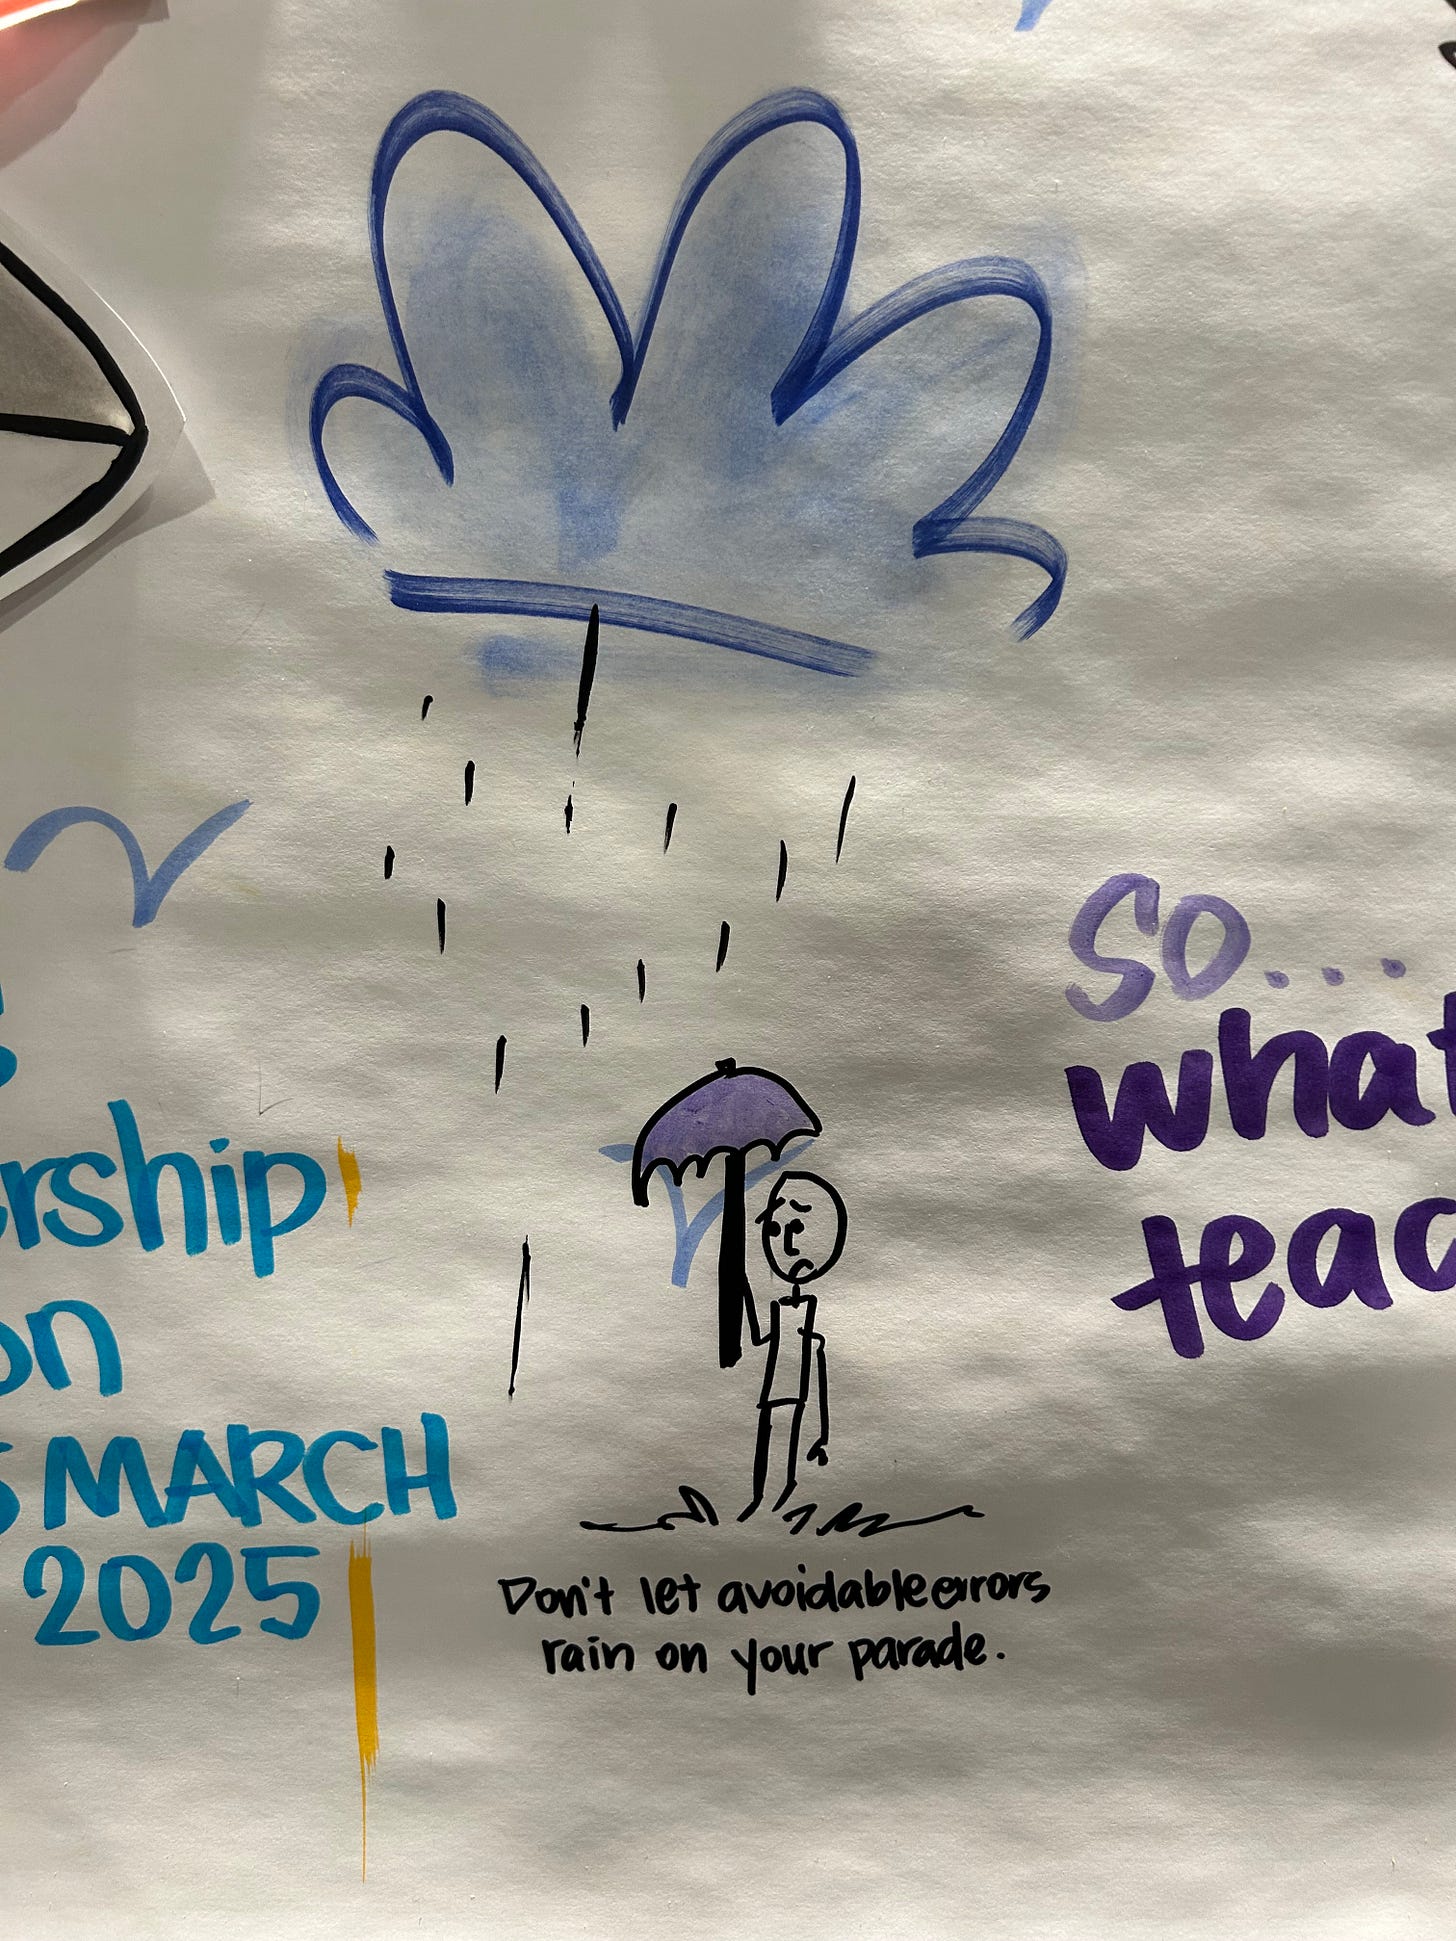 MARCH
2025
Don't let avoidable errors
rain on your parade.
So...
what